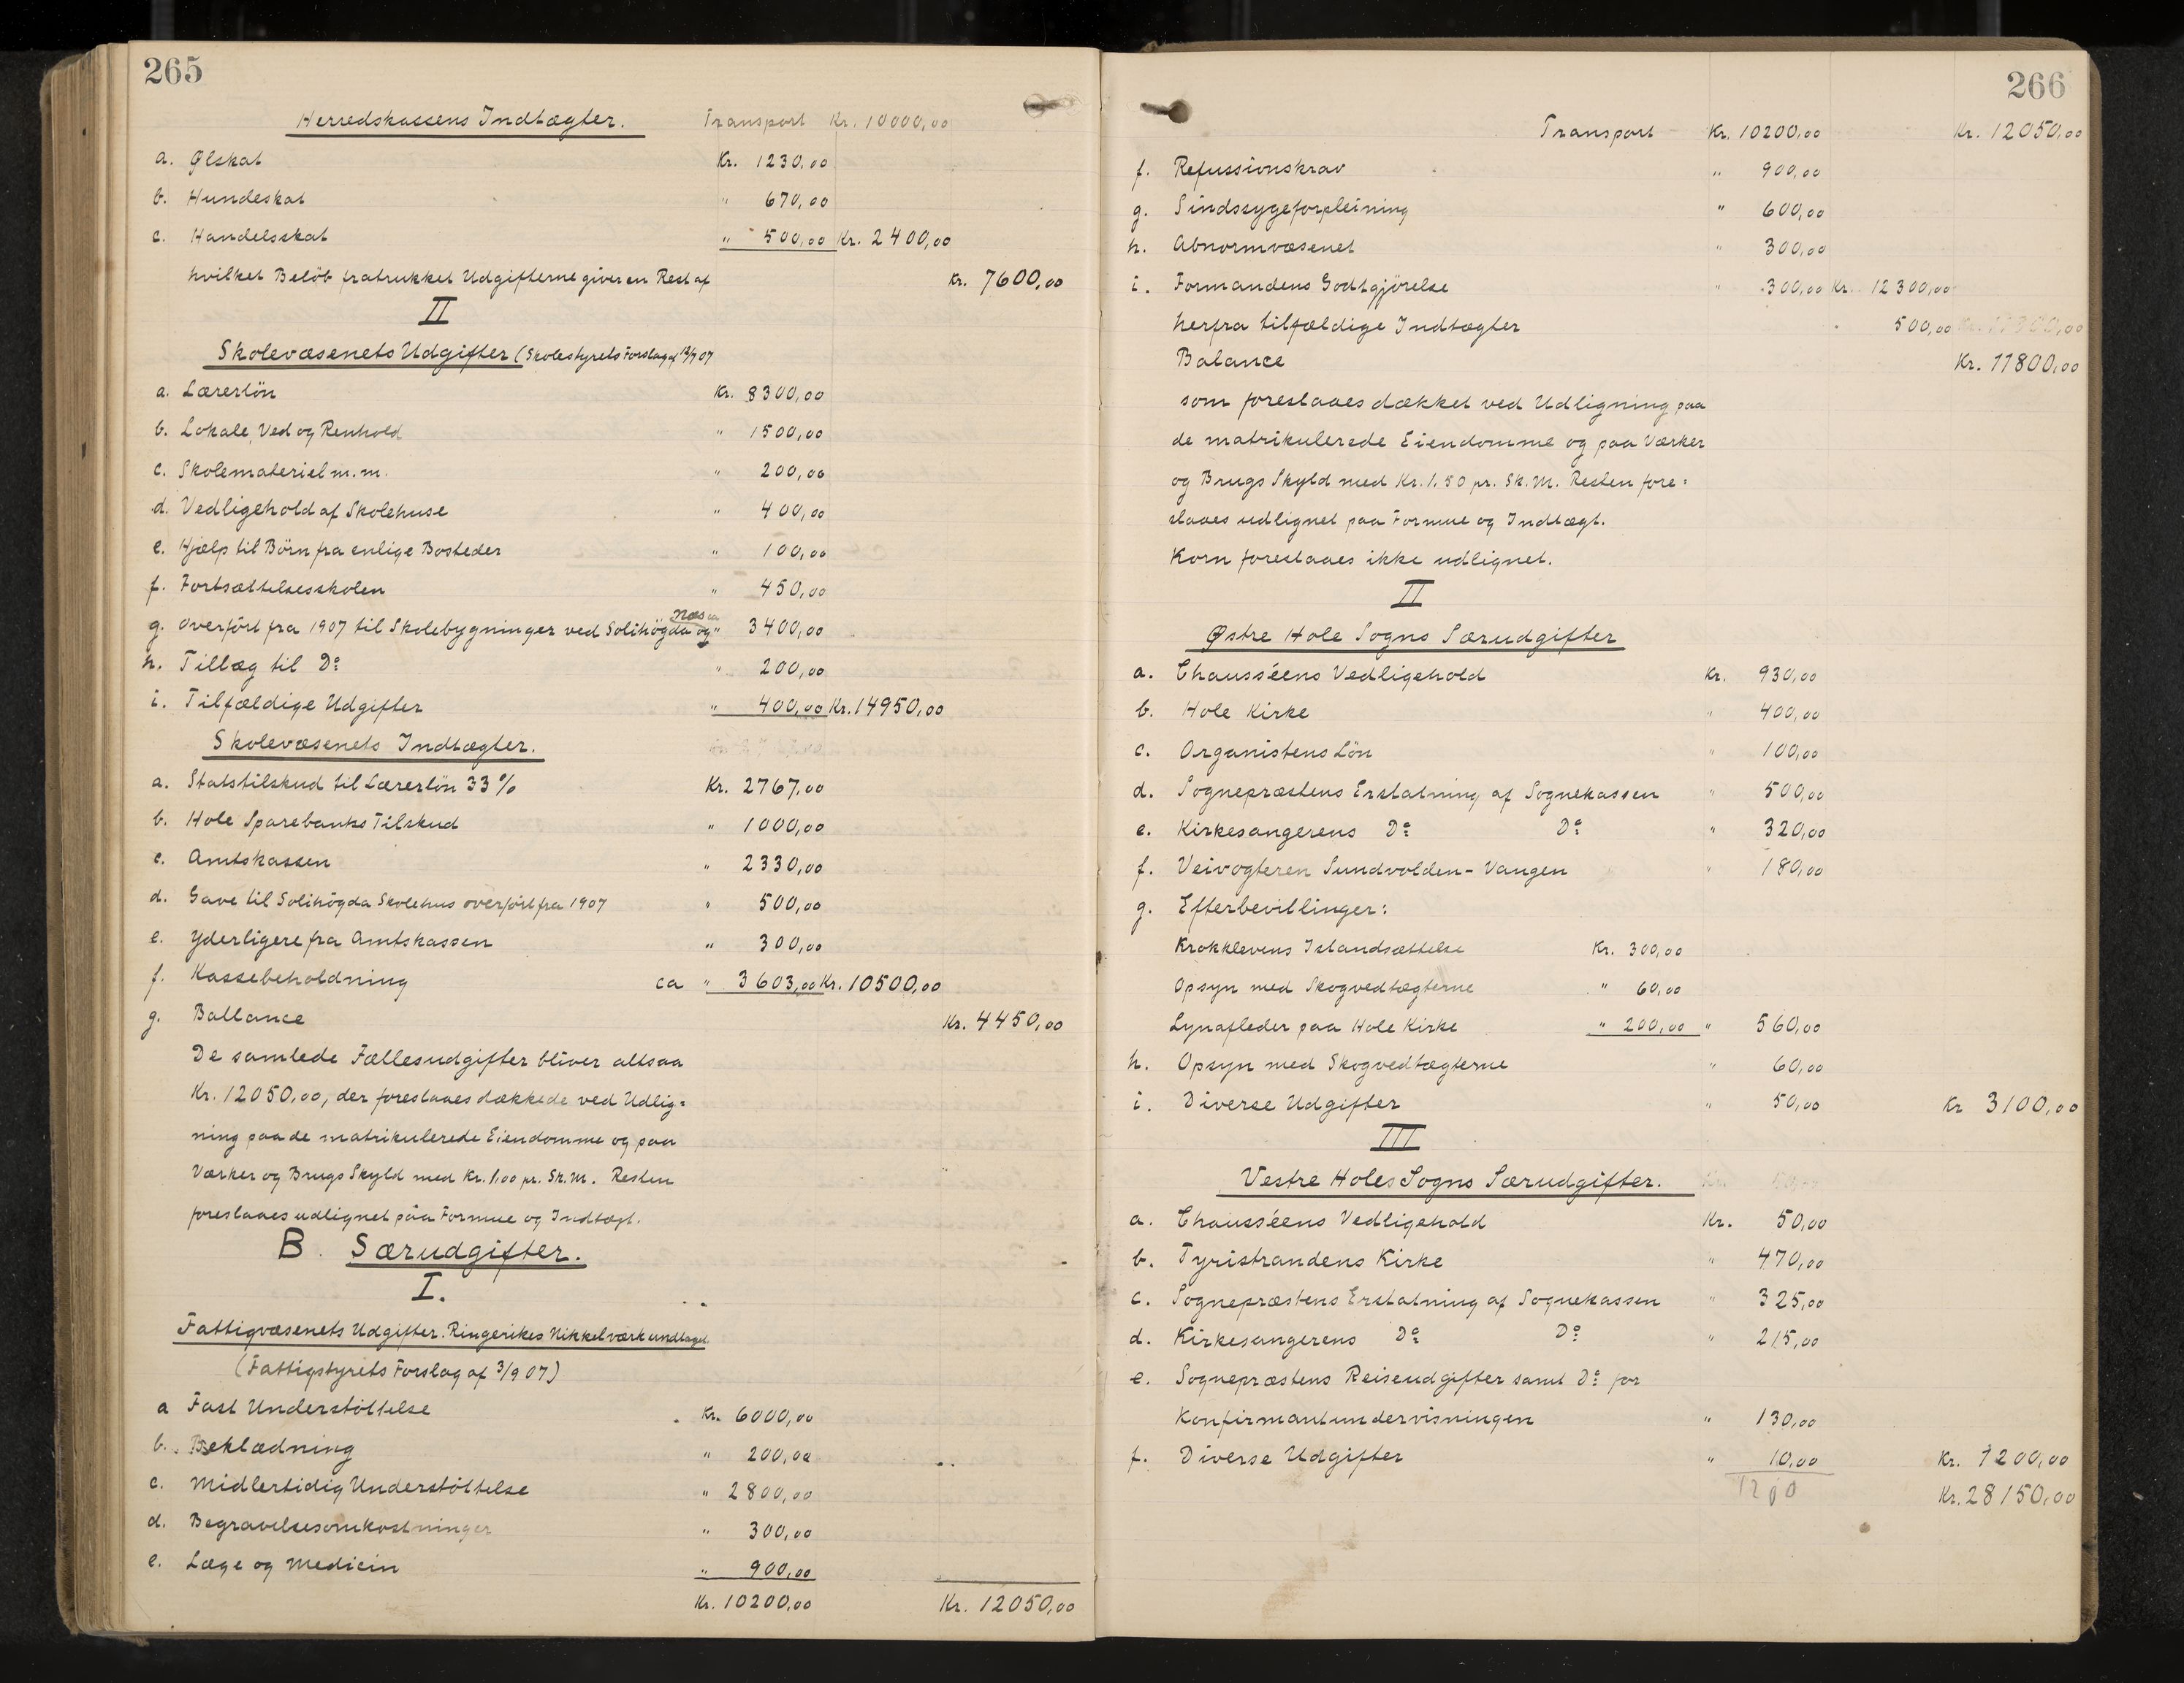 265
Herredskassens Indtægter. Transport Kr. 10000,00
a. Ølskat Kr. 1230,00
b. Hundeskat " 670,00
c. Handelsskat " 500,00 Kr. 2400,00
hvilket Belöb fratrukket Udgifterne giver en Rest af Kr. 7600,00
II
Skolevæsenets Udgifter (Skolestyrets Forslag af 12/9 07
a. Lærerlön Kr. 8300,00
b. Lokale, Ved og Renhold " 1500,00
c. Skolemateriel m.m. " 200,00
d. Vedligehold af Skolehuse " 400,00
e. Hjælp til Börn fra enlige Bosteder " 100,00
f. Fortsættelsesskolen " 450,00
Næs
g. Overfört fra 1907 til Skolebygninger ved Solihögda og " 3400,00
h. Tillæg til Do " 200,00
i. Tilfældige Udgifter " 400,00 Kr. 14950,00
Skolevæsenets Indtægter.
a. Statstilskud til Lærerlön 33 % Kr. 2767,00
b. Hole Sparebanks Tilskud " 1000,00
c. Amtskassen " 2330,00
d. Gave til Solihögda Skolehus overfört fra 1907 " 500,00
e. Yderligere fra Amtskassen " 300,00
f. Kassebeholdning ca " 3603,00 Kr. 10500,00
g. Ballance Kr. 4450,00
De samlede Fællesudgifter bliver altsaa
Kr. 12050,00, der foreslaaes dækkede ved Udlig=
ning paa de matrikulerede Eiendomme og paa
Værker og Brugs Skyld med Kr. 1,00 pr. Sk.M. Resten
foreslaaes udlignet paa Formue og Indtægt.
B. Særudgifter.
I.
Fattigvæsenets Udgifter. Ringerikes Nikkelværk undtaget
(Fattigstyrets Forslag af 3/9 07)
a Fast Understöttelse Kr. 6000,00
b. Beklædning " 200,00
c. Midlertidig Understöttelse " 2800,00
d. Begravelsesomkostninger " 300,00
e. Læge og Medicin " 900,00
Kr. 10200,00 Kr. 12050,00
266
Transport Kr. 10200,00 Kr. 12050,00
f. Refussionskrav " 900,00
g. Sindssygeforpleining " 600,00
h. Abnormvæsenet " 300,00
i. Formandens Godtgjörelse " 300,00 Kr. 12300,00
herfra tilfældige Indtægter 500,00
Balance Kr. 11800,00
som foreslaaes dækket ved Udligning paa
de matrikulerede Eiendomme og paa Værker
og Brugs Skyld med Kr. 1.50 pr. Sk.M. Resten fore=
slaaes udlignet paa Formue og Indtægt.
Korn foreslaaes ikke udlignet.
II
Østre Hole Sogns Særudgifter
a. Chausséens Vedligehold Kr. 930,00
b. Hole Kirke " 400,00
c. Organistens Lön " 100,00
d. Sognepræstens Erstatning af Sognekassen " 500,00
e. Kirkesangerens Do Do " 320,00
f. Veivogteren Sundvolden - Vangen " 180,00
g. Efterbevillinger:
Krokklevens Istandsættelse Kr. 300,00
Opsyn med Skogvedtægterne " 60,00
Lynafleder paa Hole Kirke " 200,00 " 560,00
h. Opsyn med Skogvedtægterne " 60,00
i. Diverse Udgifter " 50,00 Kr 3100,00
III
Vestre Holes Sogns Særudgifter.
a. Chausséens Vedligehold Kr. 50,00
b. Tyristrandens Kirke " 470,00
c. Sognepræstens Erstatning af Sognekassen " 325,00
d. Kirkesangerens Do Do " 215,00
e. Sognepræstens Reiseudgifter samt Do for
Konfirmantundervisningen " 130,00
f. Diverse Udgifter " 10,00 Kr. 1200,00
Kr. 28150,00